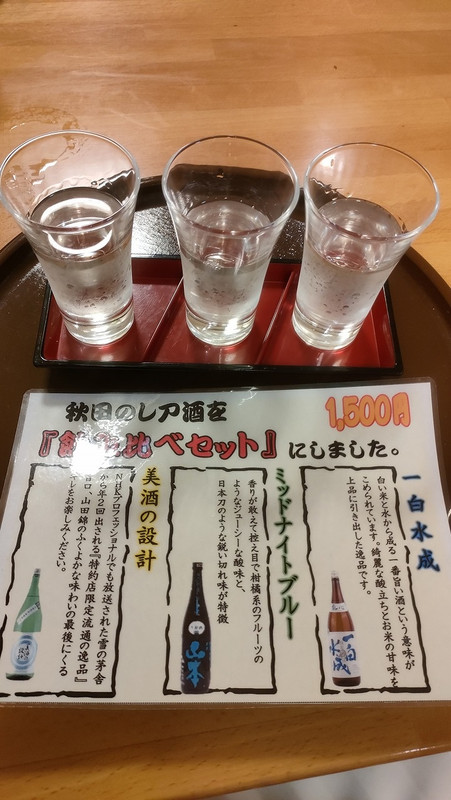 秋田のレア酒を
1,500円
『飲み比べセット』にしました。
一白水成
白い米と水から成る一番旨い酒という意味が
こめられています。綺麗な酸立ちとお米の甘味を
上品に引き出した逸品です。
一白
水成
ミッドナイトブルー
香りが敢えて控え目で柑橘系のフルーツの
ようなジューシーな酸味と、
日本刀のような鋭い切れ味が特徴
山本
美酒の設計
NHKプロフェッショナルでも放送された雪の茅舎
から年2回出される『特約店限定流通の逸品』
口、山田錦のふくよかな味わいの最後にくる
レをお楽しみください。